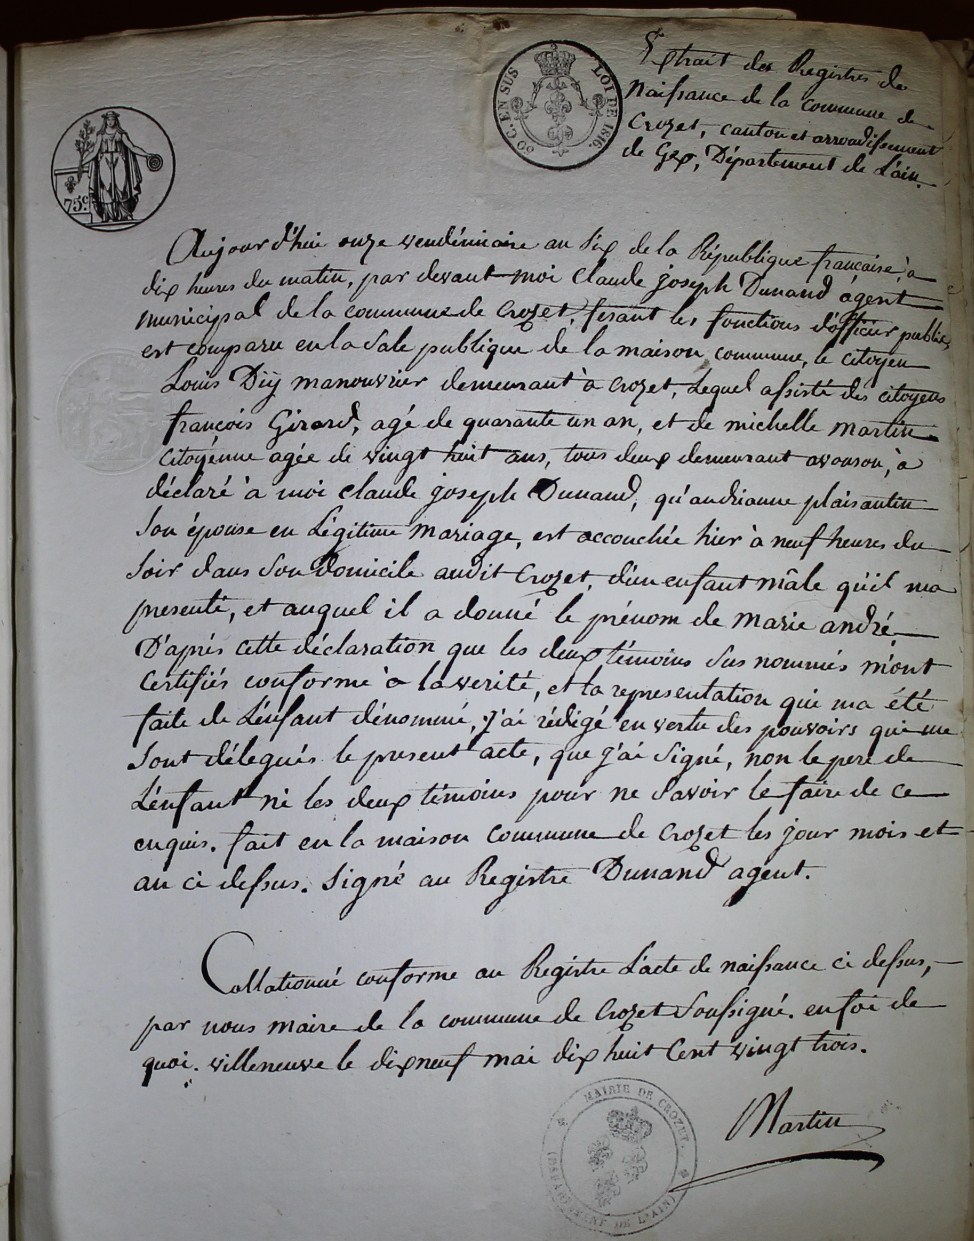 50 C. EN SUS LOI DE 1816.
75c
Extrait des Registres de
naissance de la commune de
Crozet, canton et arrondissement
de Gex, Département de L'ain.
Aujourd'hui onze vendémiaire an Six de la République française, à
dix heures du matin, par devant moi Claude Joseph Dunand agent
municipal de la commune de Crozet, fesant les fonctions d'officier public,
est comparu en la Sale publique de la maison commune, le citoyen
Louis Dij manouvrier demeurant à Crozet, Lequel assisté des citoyens
françois Girard, agé de quarante un an, et de michelle martin
citoyénne agée de vingt huit ans, tous deux demeurant avouson, à
déclaré à moi Claude Joseph Dunand, qu'andrianne plaisantin
Son épouse en Légitime Mariage, est accouchée hier à neuf heures du
Soir dans Son Domicile audit Crozet, d'un enfant mâle qu'il ma
presenté, et auquel il a donné le prénom de Marie andré
D'après cette déclaration que les deux témoins Sus nommés m'ont
Certifiés conforme à la verité, et la representation qui ma été
faite de L'enfant dénommé, j'ai rédigé en vertu des pouvoirs qui me
Sont délegués le present acte, que j'ai Signé, non le pere de
L'enfant ni les deux témoins pour ne Savoir le faire de ce
enquis. fait en la maison commune de Crozet les jour mois et
an ci dessus. Signé au Registre Dunand agent.
Collationné conforme au Registre L'acte de naissance ci dessus,
par nous maire de la commune de Crozet Soussigné. en foi de
quoi. villeneuve le dix neuf mai dix huit Cent vingt trois.
Martin
MAIRIE DE CROZET.
(DEPARTEMENT DE L'AIN)